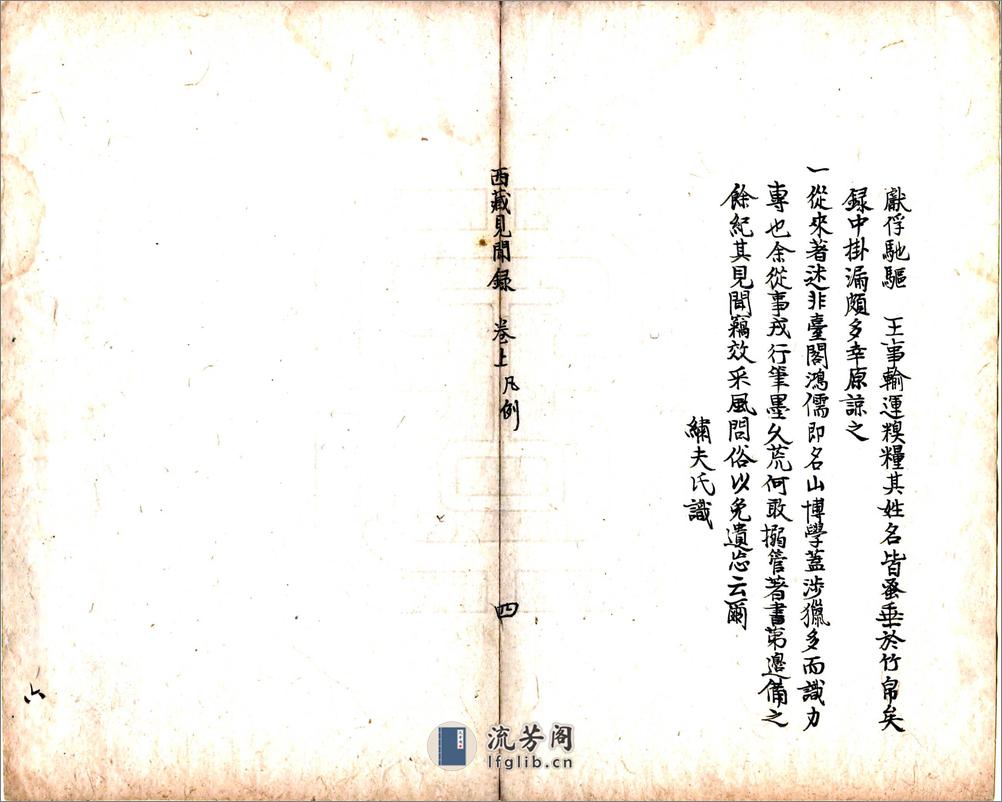 獻俘馳驅 王事輸運糗糧其姓名皆蚤垂於竹帛矣
録中掛漏頗多幸原諒之
一從來著述非臺閣鴻儒即名山博學蓋涉獵多而識力
專也余從事戎行筆墨久荒何敢搦管著書第邊備之
餘紀其見聞竊效采風問俗以免遺忘云爾
繡夫氏識
西藏見聞録 卷上 凡例 四
六
流芳阁
lfglib.cn